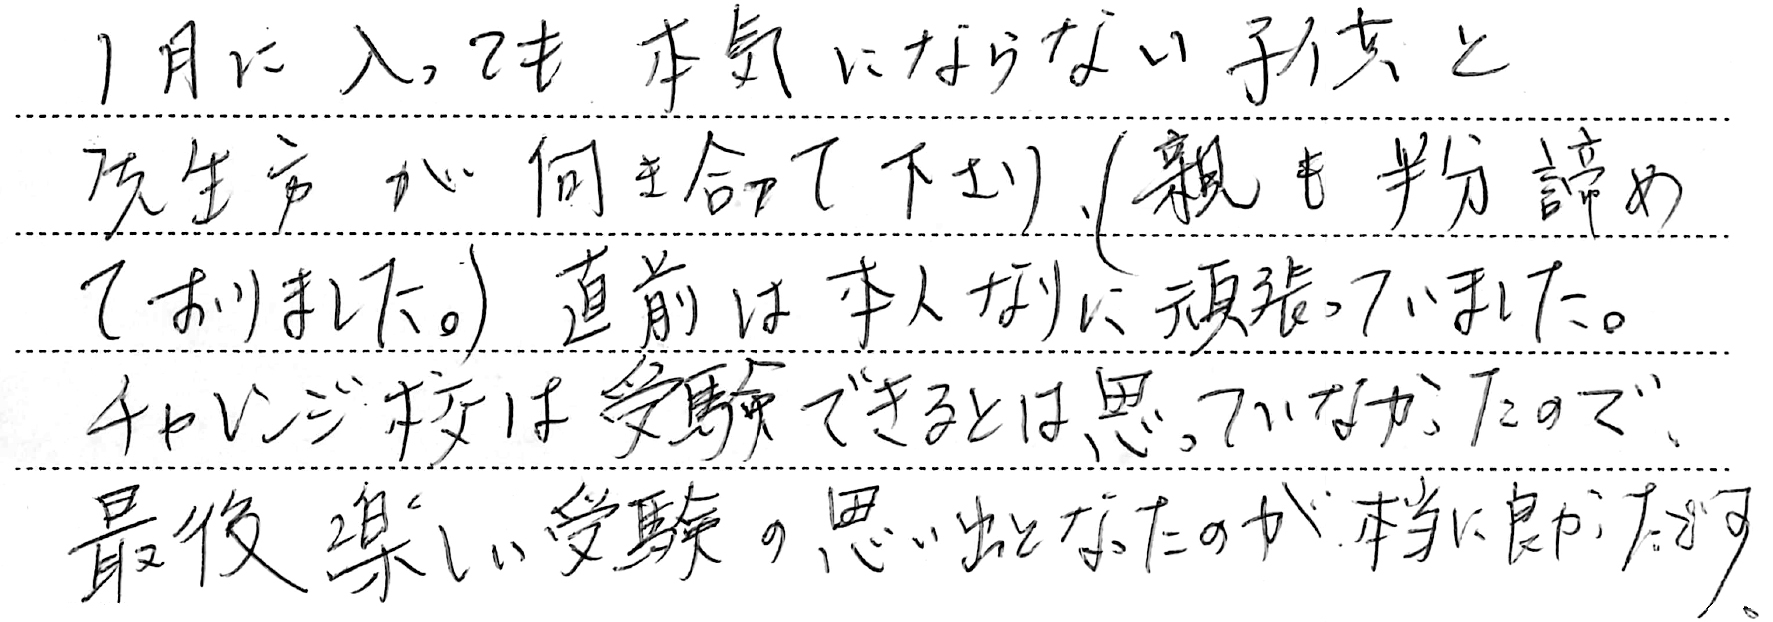 1月に入っても本気にならない子供と
先生方が向き合って下さり、(親も半分諦め
ておりました。)直前は本人なりに頑張っていました。
チャレンジ校は受験できるとは思っていなかったので、
最後楽しい受験の思い出となったのが本当に良かったです。